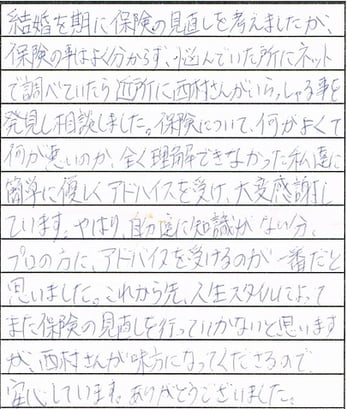 結婚を期に保険の見直しを考えましたが、
保険の事はよく分からず、悩んでいた所にネット
で調べていたら近所に西村さんがいらっしゃる事を
発見し相談しました。保険について、何がよくて
何が悪いのか、全く理解できなかった私達に
簡単に優しくアドバイスを受け、大変感謝し
ています。やはり、自分達に知識がない分、
プロの方に、アドバイスを受けるのが一番だと
思いました。これから先、人生スタイルによって
また保険の見直しを行っていかないと思います
が、西村さんが味方になってくださるので、
安心しています。ありがとうございました。